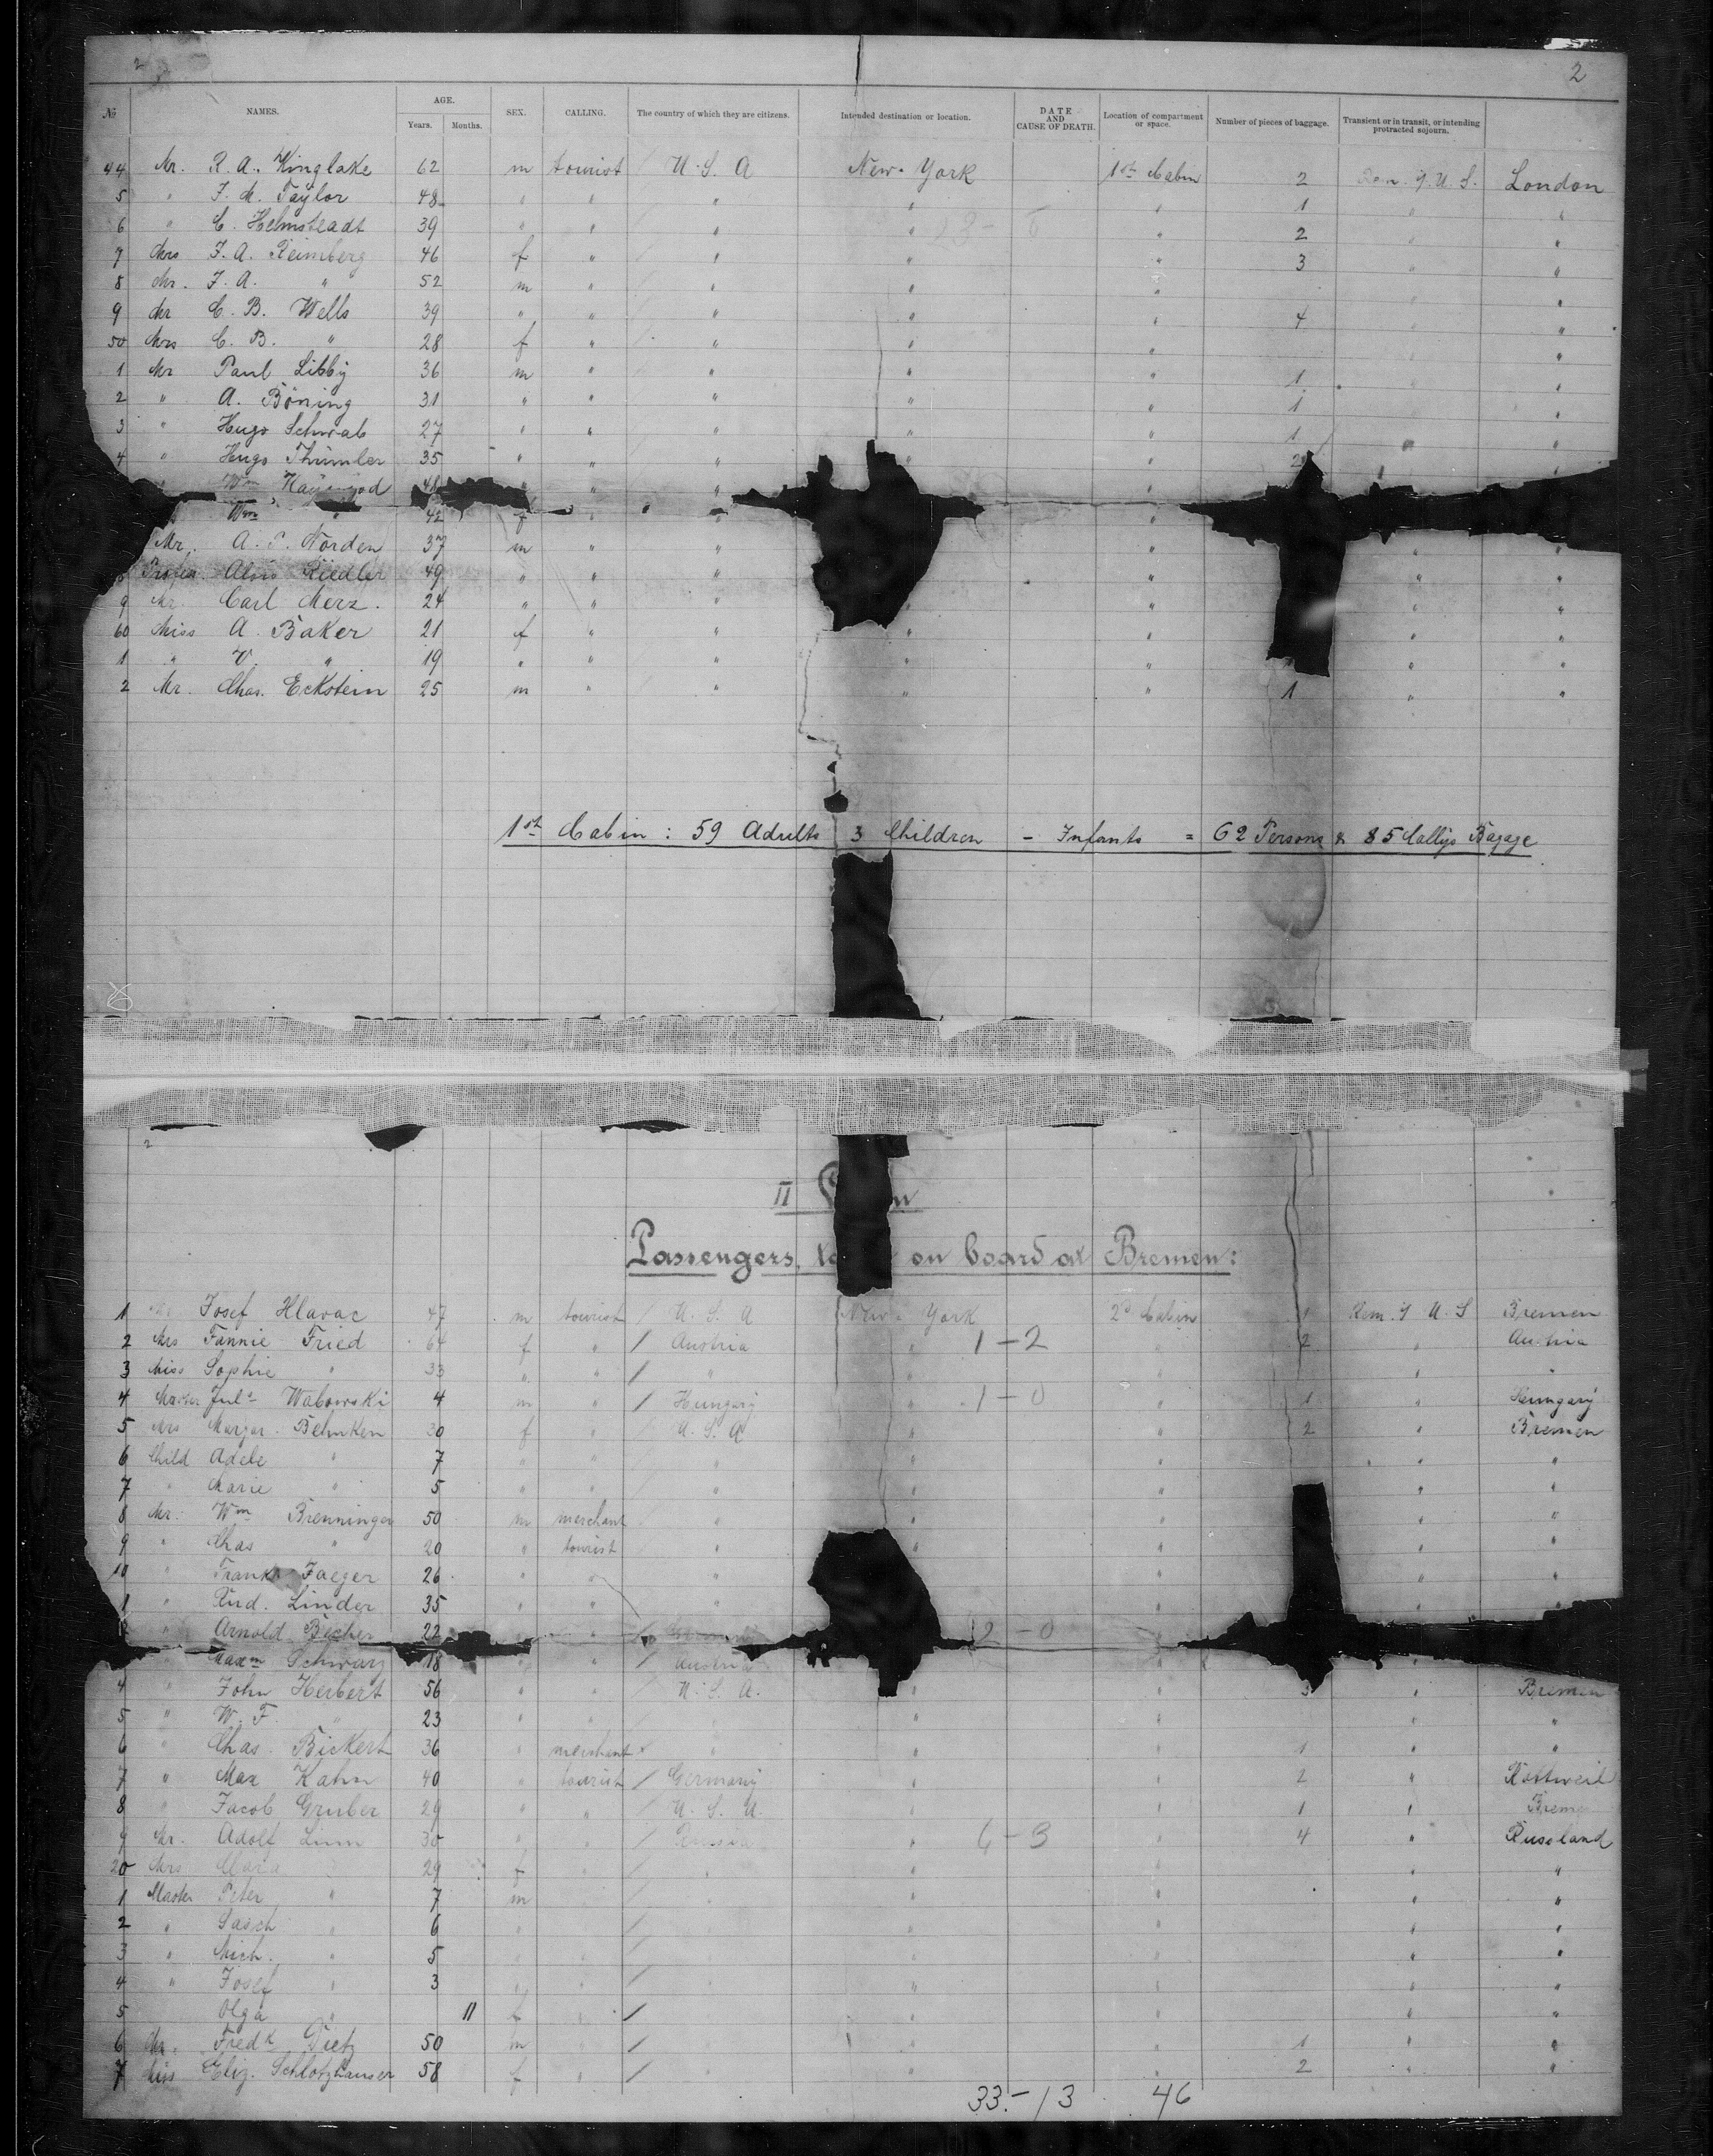 2 2
№ NAMES. AGE. Years. Months. SEX. CALLING. The country of which they are citizens. Intended destination or location. DATE AND CAUSE OF DEATH. Location of compartment or space. Number of pieces of baggage. Transient or in transit, or intending protracted sojourn.
44 Mr. R. A. Kinglake 62 m tourist U. S. A New-York 1st Cabin 2 U. S. London
5 " F. M. Taylor 48 " " " " " 1 " "
6 " C. Helmsteadt 39 " " " " 23- " 2 " "
7 Mrs F. A. Reimberg 46 f " " " " 3 " "
8 Mr. F. A. " 52 m " " " " "
9 Mr C. B. Wells 39 " " " " " 4 "
50 Mrs C. B. " 28 f " " " " "
1 Mr Paul Libby 36 m " " " " 1 " "
2 " A. Böning 31 " " " " " 1 "
3 " Hugo Schwab 27 " " " " " 1 " "
4 " Hugo Thümler 35 " " " " " 2 "
Wm 48 " " "
Wm " 42 f " " "
Mr. A. P. Norden 37 m " " " " "
Alois Riedler 49 " " " " " "
9 Mr. Carl Merz. 24 " " " " " " "
60 Miss A. Baker 21 f " " " " " "
1 " V. " 19 " " " " " " "
2 Mr. Chas. Eckstein 25 m " " " " 1 " "
1st Cabin: 59 Adults 3 Children - Infants = 62 Persons & 85 Collys Bagage
2
II
Passengers, on board at Bremen:
1 Mr Josef Hlavac 47 m tourist / U. S. A New-York 2d Cabin 1 Rem. I U S Bremen
2 Mrs Fannie Fried 64 f " / Austria " 1-2 " 2 " Austria
3 Miss Sophie " 33 " " / " " " " "
4 Master Jul. Wabowski 4 m " / Hungary " 1-0 " 1 " Hungary
5 Mrs Margar. Behnken 30 f " U. S. A " " 2 " Bremen
6 Child Adele " 7 " " " " " " "
7 " Marie " 5 " " " " " "
8 Mr. Wm Brenninger 50 m merchant " " " " "
9 " Chas " 20 " tourist " " " " "
10 " Frank Jaeger 26 " " " " " "
1 " Rud. Linder 35 " " " " " "
" Arnold Becher 22 " " / 2-0 "
" Schwarz 18 " " / Austria " "
4 " John Herbert 56 " " U. S. A. " " 3 " Bremen
5 " W. F. " 23 " " " " " "
6 " Chas. Bickert 36 " merchant " " " 1 " "
7 " Max Kahn 40 " tourist / Germany " " 2 " Rottweil
8 " Jacob Gruber 29 " " U. S. A. " " 1 "
9 Mr. Adolf Linn 30 " " / Russia " 6-3 " 4 " Russland
20 Mrs Clara " 29 f " / " " " " "
1 Master Peter " 7 m " / " " " " "
2 " Sasch " 6 " " / " " " " "
3 " Mich. " 5 " " / " " " " "
4 " Josef " 3 " " / " " " " "
5 Olga " 11 f " / " " " "
6 Mr. Fredk Dietz 50 m " / " " " 1 " "
7 Miss Eliz. Schlotzhauser 58 f " / " " " 2 " "
33.-13 46